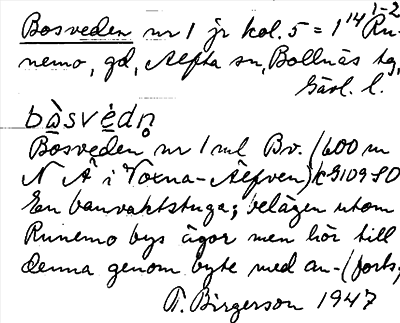 Bosveden nr 1 jr kol. 5 = 1¹⁴ 1-2 Ru-
nemo, gd, Alfta sn, Bollnäs tg,
Gävl. l.
bὰsvèdn̥
Bosveden nr 1 ml Bv. (600 m
N Å i Voxna-Älfven)
En banvaktstuga; belägen utom
Runemo bys ägor men hör till
denna genom byte med an-(forts,
T. Birgerson 1947